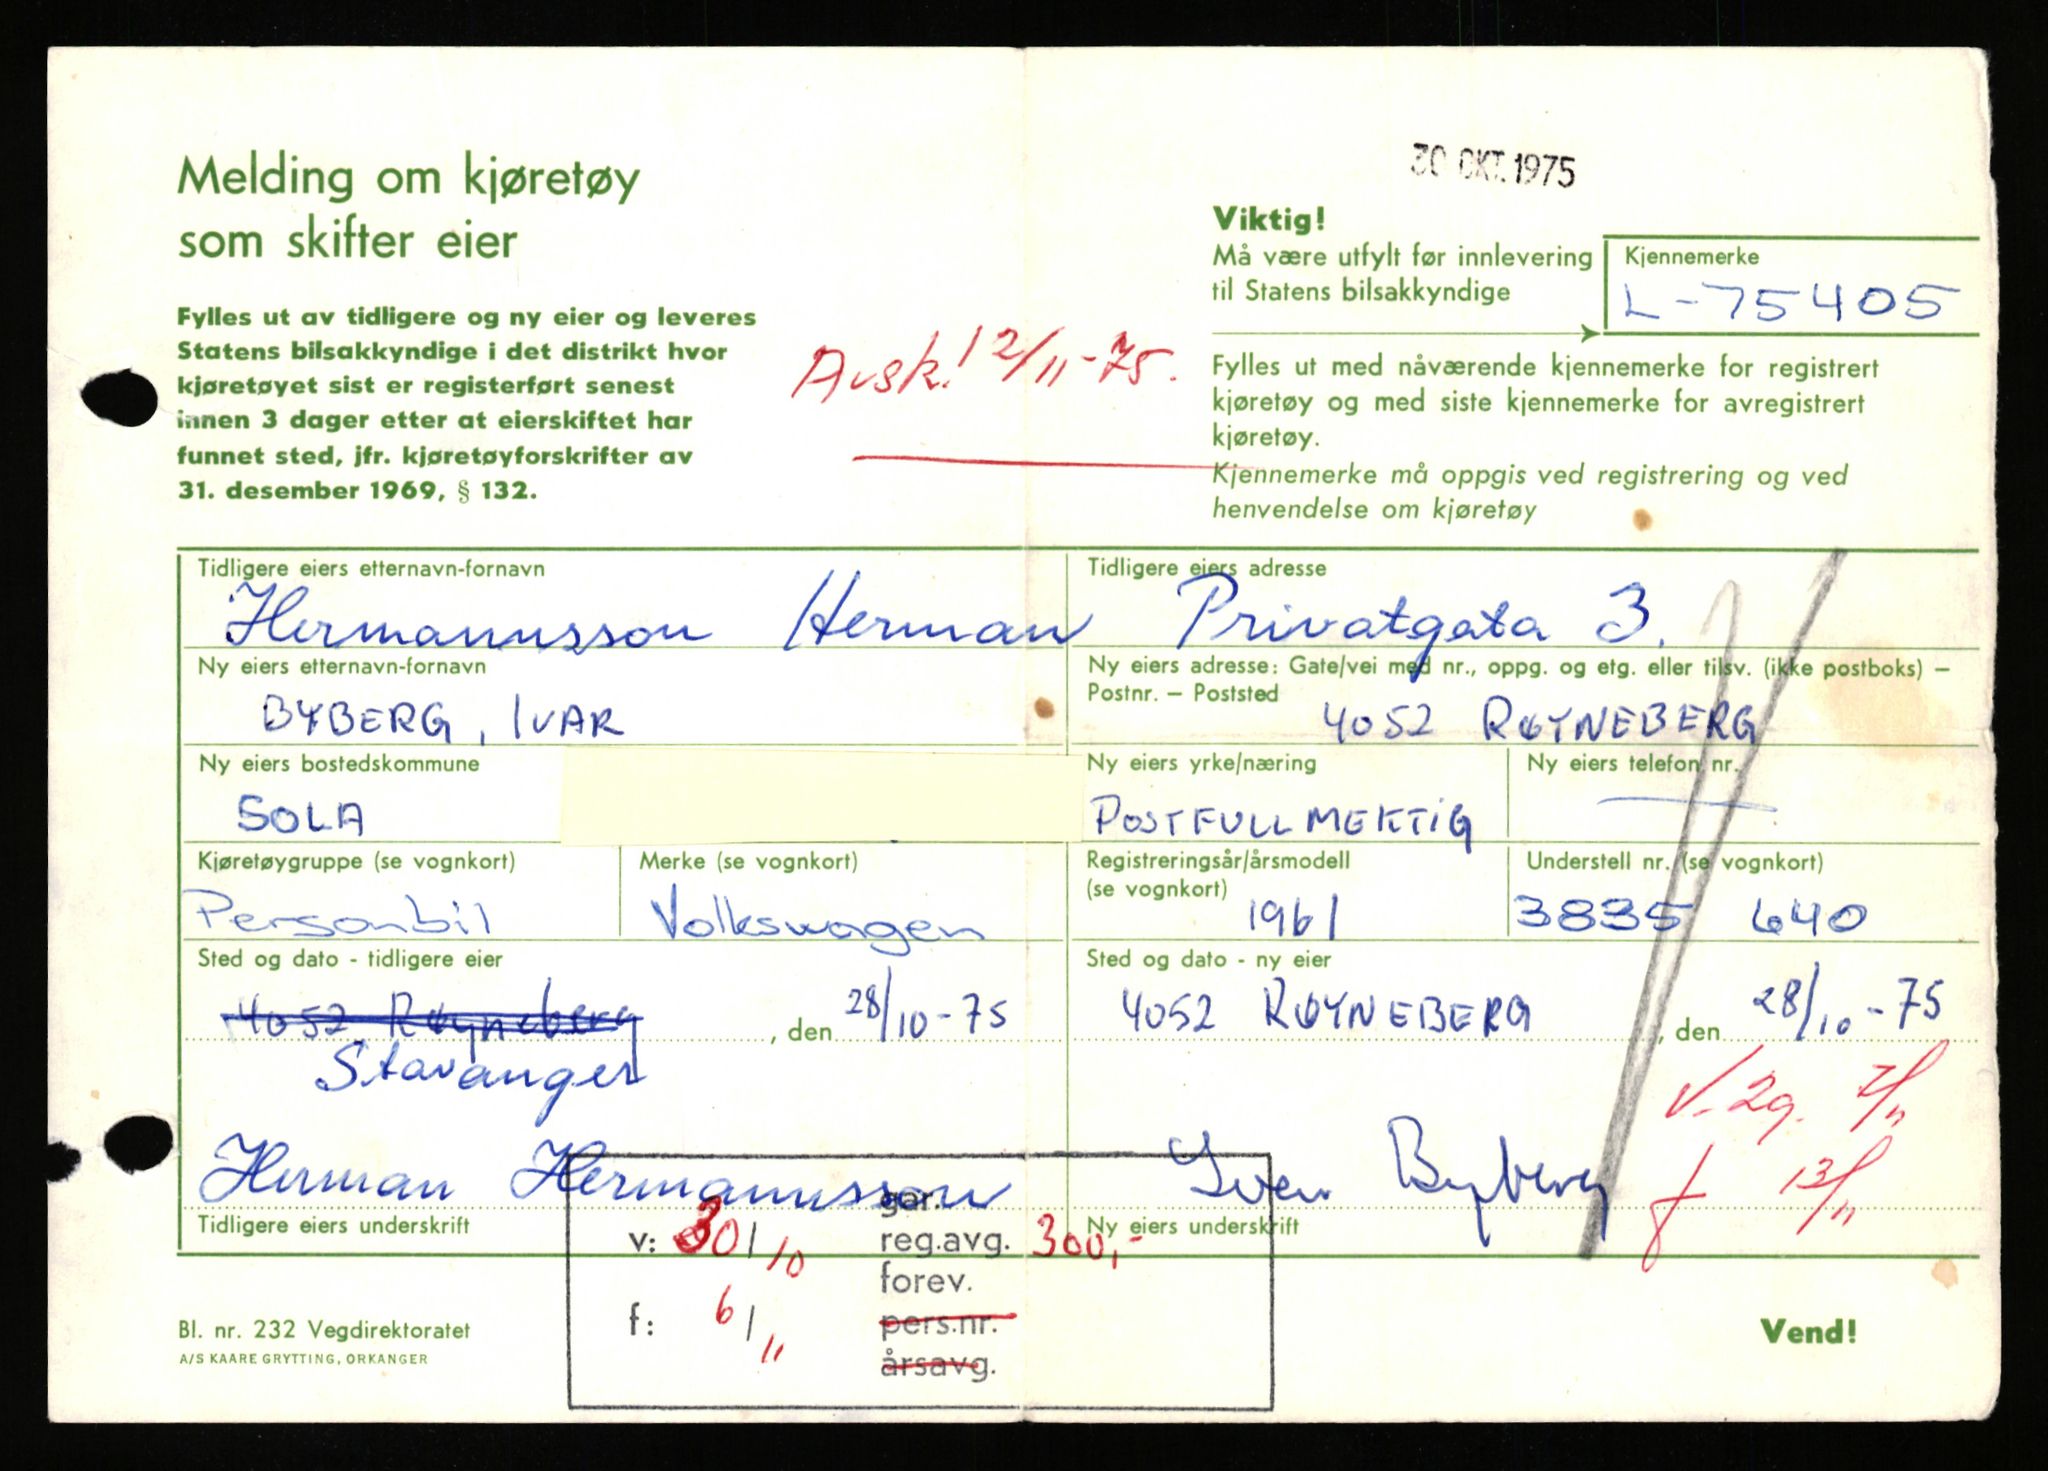 30 OKT. 1975
Melding om kjøretøy
som skifter eier
Viktig!
Må være utfylt før innlevering
til Statens bilsakkyndige
Kjennemerke
L-75405
Fylles ut av tidligere og ny eier og leveres
Statens bilsakkyndige i det distrikt hvor
kjøretøyet sist er registerført senest
innen 3 dager etter at eierskiftet har
funnet sted, jfr. kjøretøyforskrifter av
31. desember 1969, § 132.
Avsk. 12/11-75.
Fylles ut med nåværende kjennemerke for registrert
kjøretøy og med siste kjennemerke for avregistrert
kjøretøy.
Kjennemerke må oppgis ved registrering og ved
henvendelse om kjøretøy
Tidligere eiers etternavn-fornavn
Hermannsson Herman
Tidligere eiers adresse
Privatgata 3.
Ny eiers etternavn-fornavn
BYBERG, IVAR
Ny eiers adresse: Gate/vei med nr., oppg. og etg. eller tilsv. (ikke postboks) –
Postnr. – Poststed
4052 RØYNEBERG
Ny eiers bostedskommune
SOLA
Ny eiers yrke/næring
POSTFULLMEKTIG
Ny eiers telefon nr.
Kjøretøygruppe (se vognkort)
Personbil
Merke (se vognkort)
Volkswagen
Registreringsår/årsmodell
(se vognkort)
1961
Understell nr. (se vognkort)
3835 640
Sted og dato - tidligere eier
4052 Røyneberg, den 28/10-75
Stavanger
Sted og dato - ny eier
4052 RØYNEBERG, den 28/10-75
V. 2g. 7/11
f 13/11
Herman Hermannsson
Tidligere eiers underskrift
Iver Byberg
Ny eiers underskrift
gar.
v: 30/10 reg.avg. 300,-
forev.
f: 6/11 pers.nr.
årsavg.
Bl. nr. 232 Vegdirektoratet
A/S KAARE GRYTTING, ORKANGER
Vend!